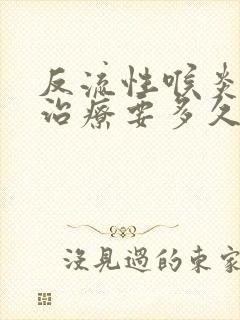 反流性喉炎
治疗要多久
没見過的東家